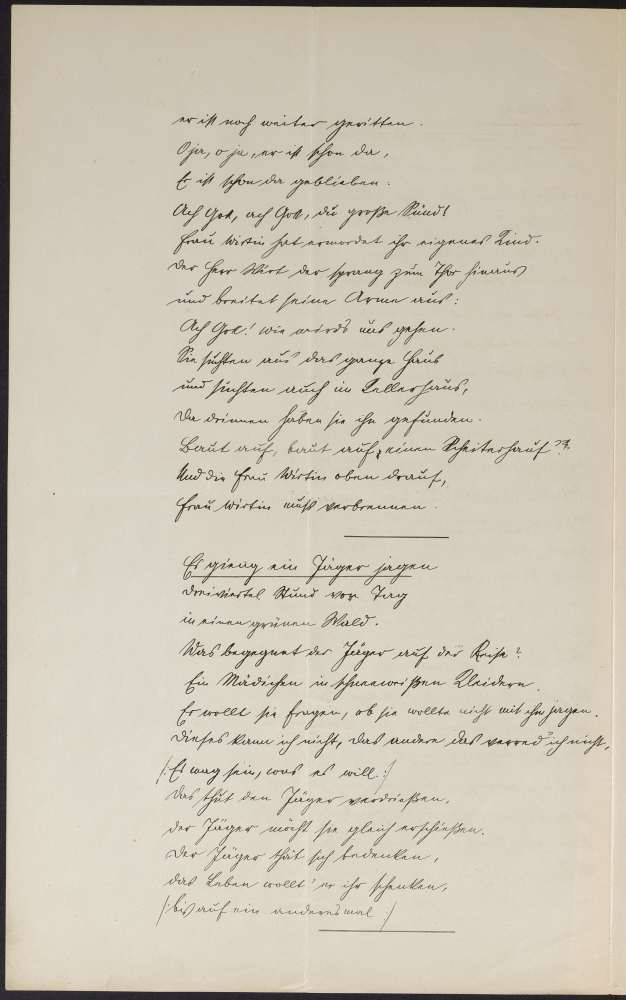 er ist noch weiter geritten.
O ja, o ja, er ist schon da,
Er ist schon da geblieben.
Ach Gott, ach Gott, du große Sünd!
Frau Wirtin hat ermordet ihr eigenes Kind.
Der Herr Wirt der sprang zum Thor hinaus
und breitet seine Arme aus:
Ach Gott! wie wirds uns gehen.
Sie suchten aus das ganze Haus
und suchten auch im Kellerhaus,
Da drinnen haben sie ihn gefunden.
Baut auf, baut auf, einen Scheiterhauf
Und die Frau Wirtin oben drauf,
Frau Wirtin muß verbrennen.
Es gieng ein Jäger jagen
dreiviertel Stund vor Tag
in einen grünen Wald.
Was begegnet der Jäger auf der Reise?
Ein Mädichen in schneeweißen Kleidern.
Er wollt sie fragen, ob sie wollte nicht mit ihm jagen.
Dieses kann ich nicht, das andere das verred' ich nicht,
/: Es mag sein, was es will :/
Das thut den Jäger verdrießen,
der Jäger möcht sie gleich erschießen.
Der Jäger thät sich bedenken,
das Leben wollt' er ihr schenken,
/: bis auf ein anderesmal :/